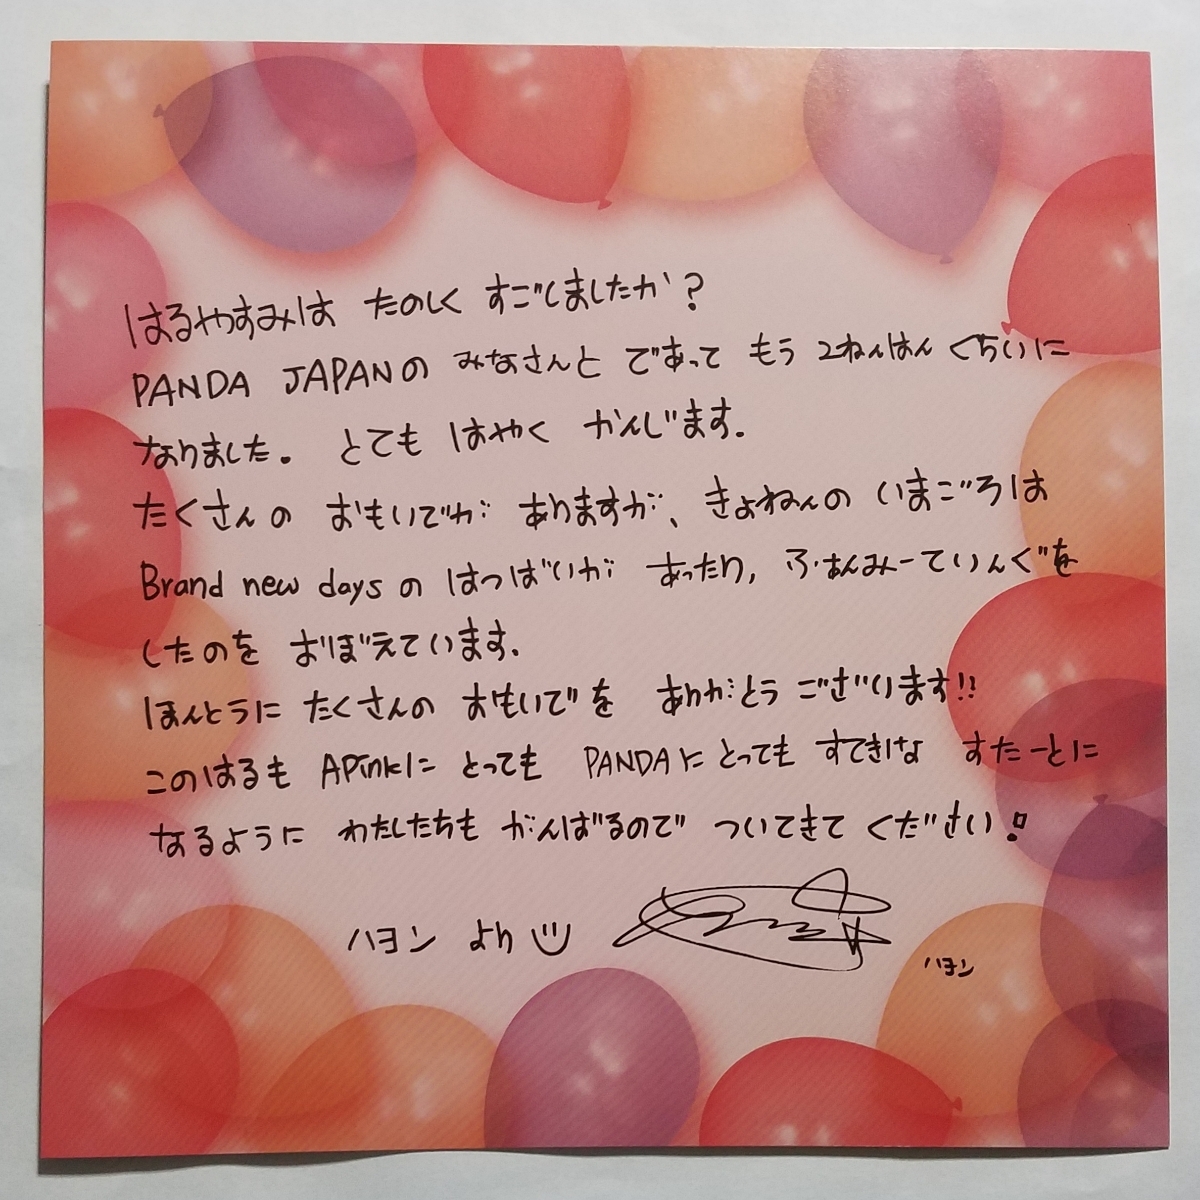 はるやすみは たのしく すごしましたか?
PANDA JAPANの みなさんと であって もう 2ねんはん くらいに
なりました。 とても はやく かんじます。
たくさんの おもいでが ありますが、 きょねんの いまごろは
Brand new daysの はつばいが あったり, ふぁんみーてぃんぐを
したのを おぼえています.
ほんとうに たくさんの おもいでを ありがとう ございます!!
このはるも APinkに とっても PANDAに とっても すてきな すたーとに
なるように わたしたちも がんばるので ついてきて ください!
ハヨン より
ハヨン